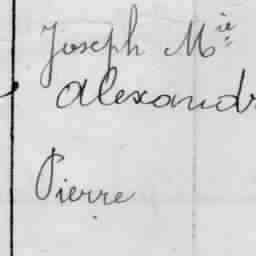 Joseph Mie
Alexandr
Pierre